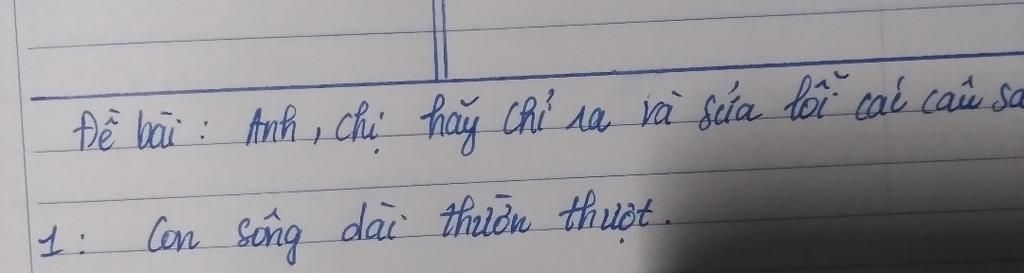 Đề bài: Anh, chị hãy chỉ ra và sửa lỗi các câu sa
1: Con sông dài thườn thượt.